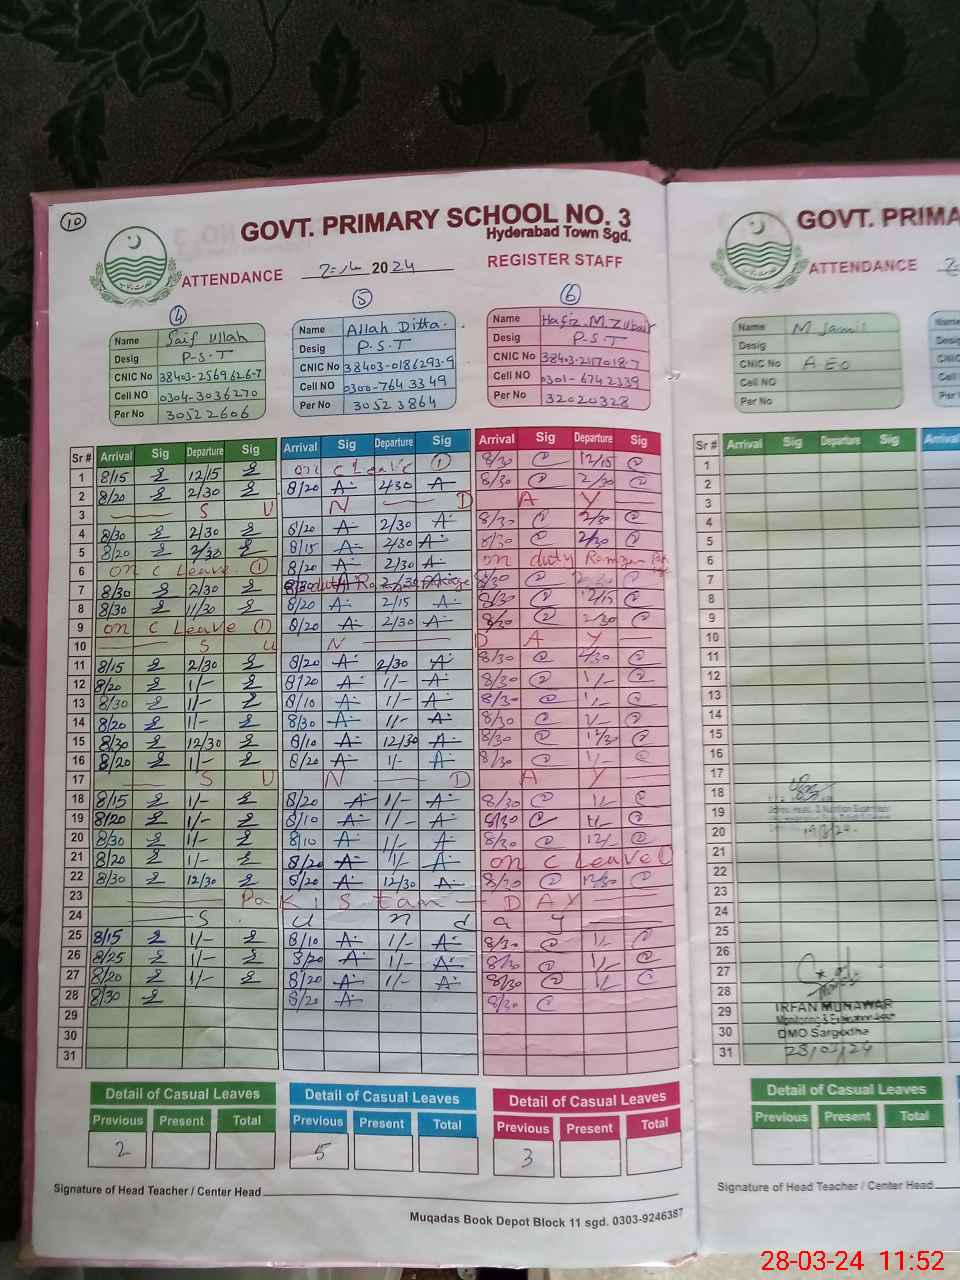 10
GOVT. PRIMARY SCHOOL NO. 3
Hyderabad Town Sgd.
ATTENDANCE 2024 REGISTER STAFF
4 5 6
Name Saif Ullah
Desig P.S.T
CNIC No 38403-2569626-7
Cell NO 0304-3036270
Per No 30522606
Name Allah Ditta.
Desig P.S.T
CNIC No 38403-0186293-9
Cell NO 0300-7643349
Per No 30523864
Name Hafiz M. Zubair
Desig P.S.T
CNIC No
Cell NO 0301-6742339
Per No 32020328
Sr # Arrival Sig Departure Sig Arrival Sig Departure Sig Arrival Sig Departure Sig
1 8/15 12/15 on c Leave 1 8/30 12/15
2 8/20 2/30 8/20 2/30 8/30 2/30
3 S U N D A Y
4 8/30 2/30 8/20 2/30 8/30 2/30
5 8/20 2/30 8/15 2/30 8/30 2/30
6 on c Leave 1 8/20 2/30 on duty Ramzan
7 8/30 2/30 8/30 2/30
8 8/30 11/30 8/20 2/15 8/30 12/15
9 on c Leave 1 8/20 2/30 8/30 2/30
10 S U N D A Y
11 8/15 2/30 8/20 2/30 8/30 2/30
12 8/20 1/- 8/20 1/- 8/30 1/-
13 8/30 1/- 8/10 1/- 8/30 1/-
14 8/20 1/- 8/30 1/- 8/30 1/-
15 8/30 12/30 8/10 12/30 8/30 12/30
16 8/20 1/- 8/20 1/- 8/30 1/-
17 S U N D A Y
18 8/15 1/- 8/20 1/- 8/30 1/-
19 8/20 1/- 8/10 1/- 8/30 1/-
20 8/30 1/- 8/10 1/- 8/30 12/
21 8/20 1/- 8/20 1/- on c Leave 1
22 8/30 12/30 8/20 12/30 8/30 12/30
23 Pakistan DAY
24 S u n d a y
25 8/15 1/- 8/10 1/- 8/30 1/-
26 8/25 1/- 8/20 1/- 8/30 1/-
27 8/20 1/- 8/20 1/- 8/30 1/-
28 8/30 8/20 8/30
29
30
31
Detail of Casual Leaves Detail of Casual Leaves Detail of Casual Leaves
Previous Present Total Previous Present Total Previous Present Total
2 5 3
Signature of Head Teacher / Center Head
Muqadas Book Depot Block 11 sgd. 0303-9246387
GOVT. PRIMA
ATTENDANCE
Name M Jamil
Desig
CNIC No A.E.O
Cell NO
Per No
Sr # Arrival Sig Departure Sig Arrival
1
2
3
4
5
6
7
8
9
10
11
12
13
14
15
16
17
18
19
20
21
22
23
24
25
26
27
28
29
30
31
IRFAN MUNAWAR
DMO Sargodha
28/03/24
Detail of Casual Leaves
Previous Present Total
Signature of Head Teacher / Center Head
28-03-24 11:52